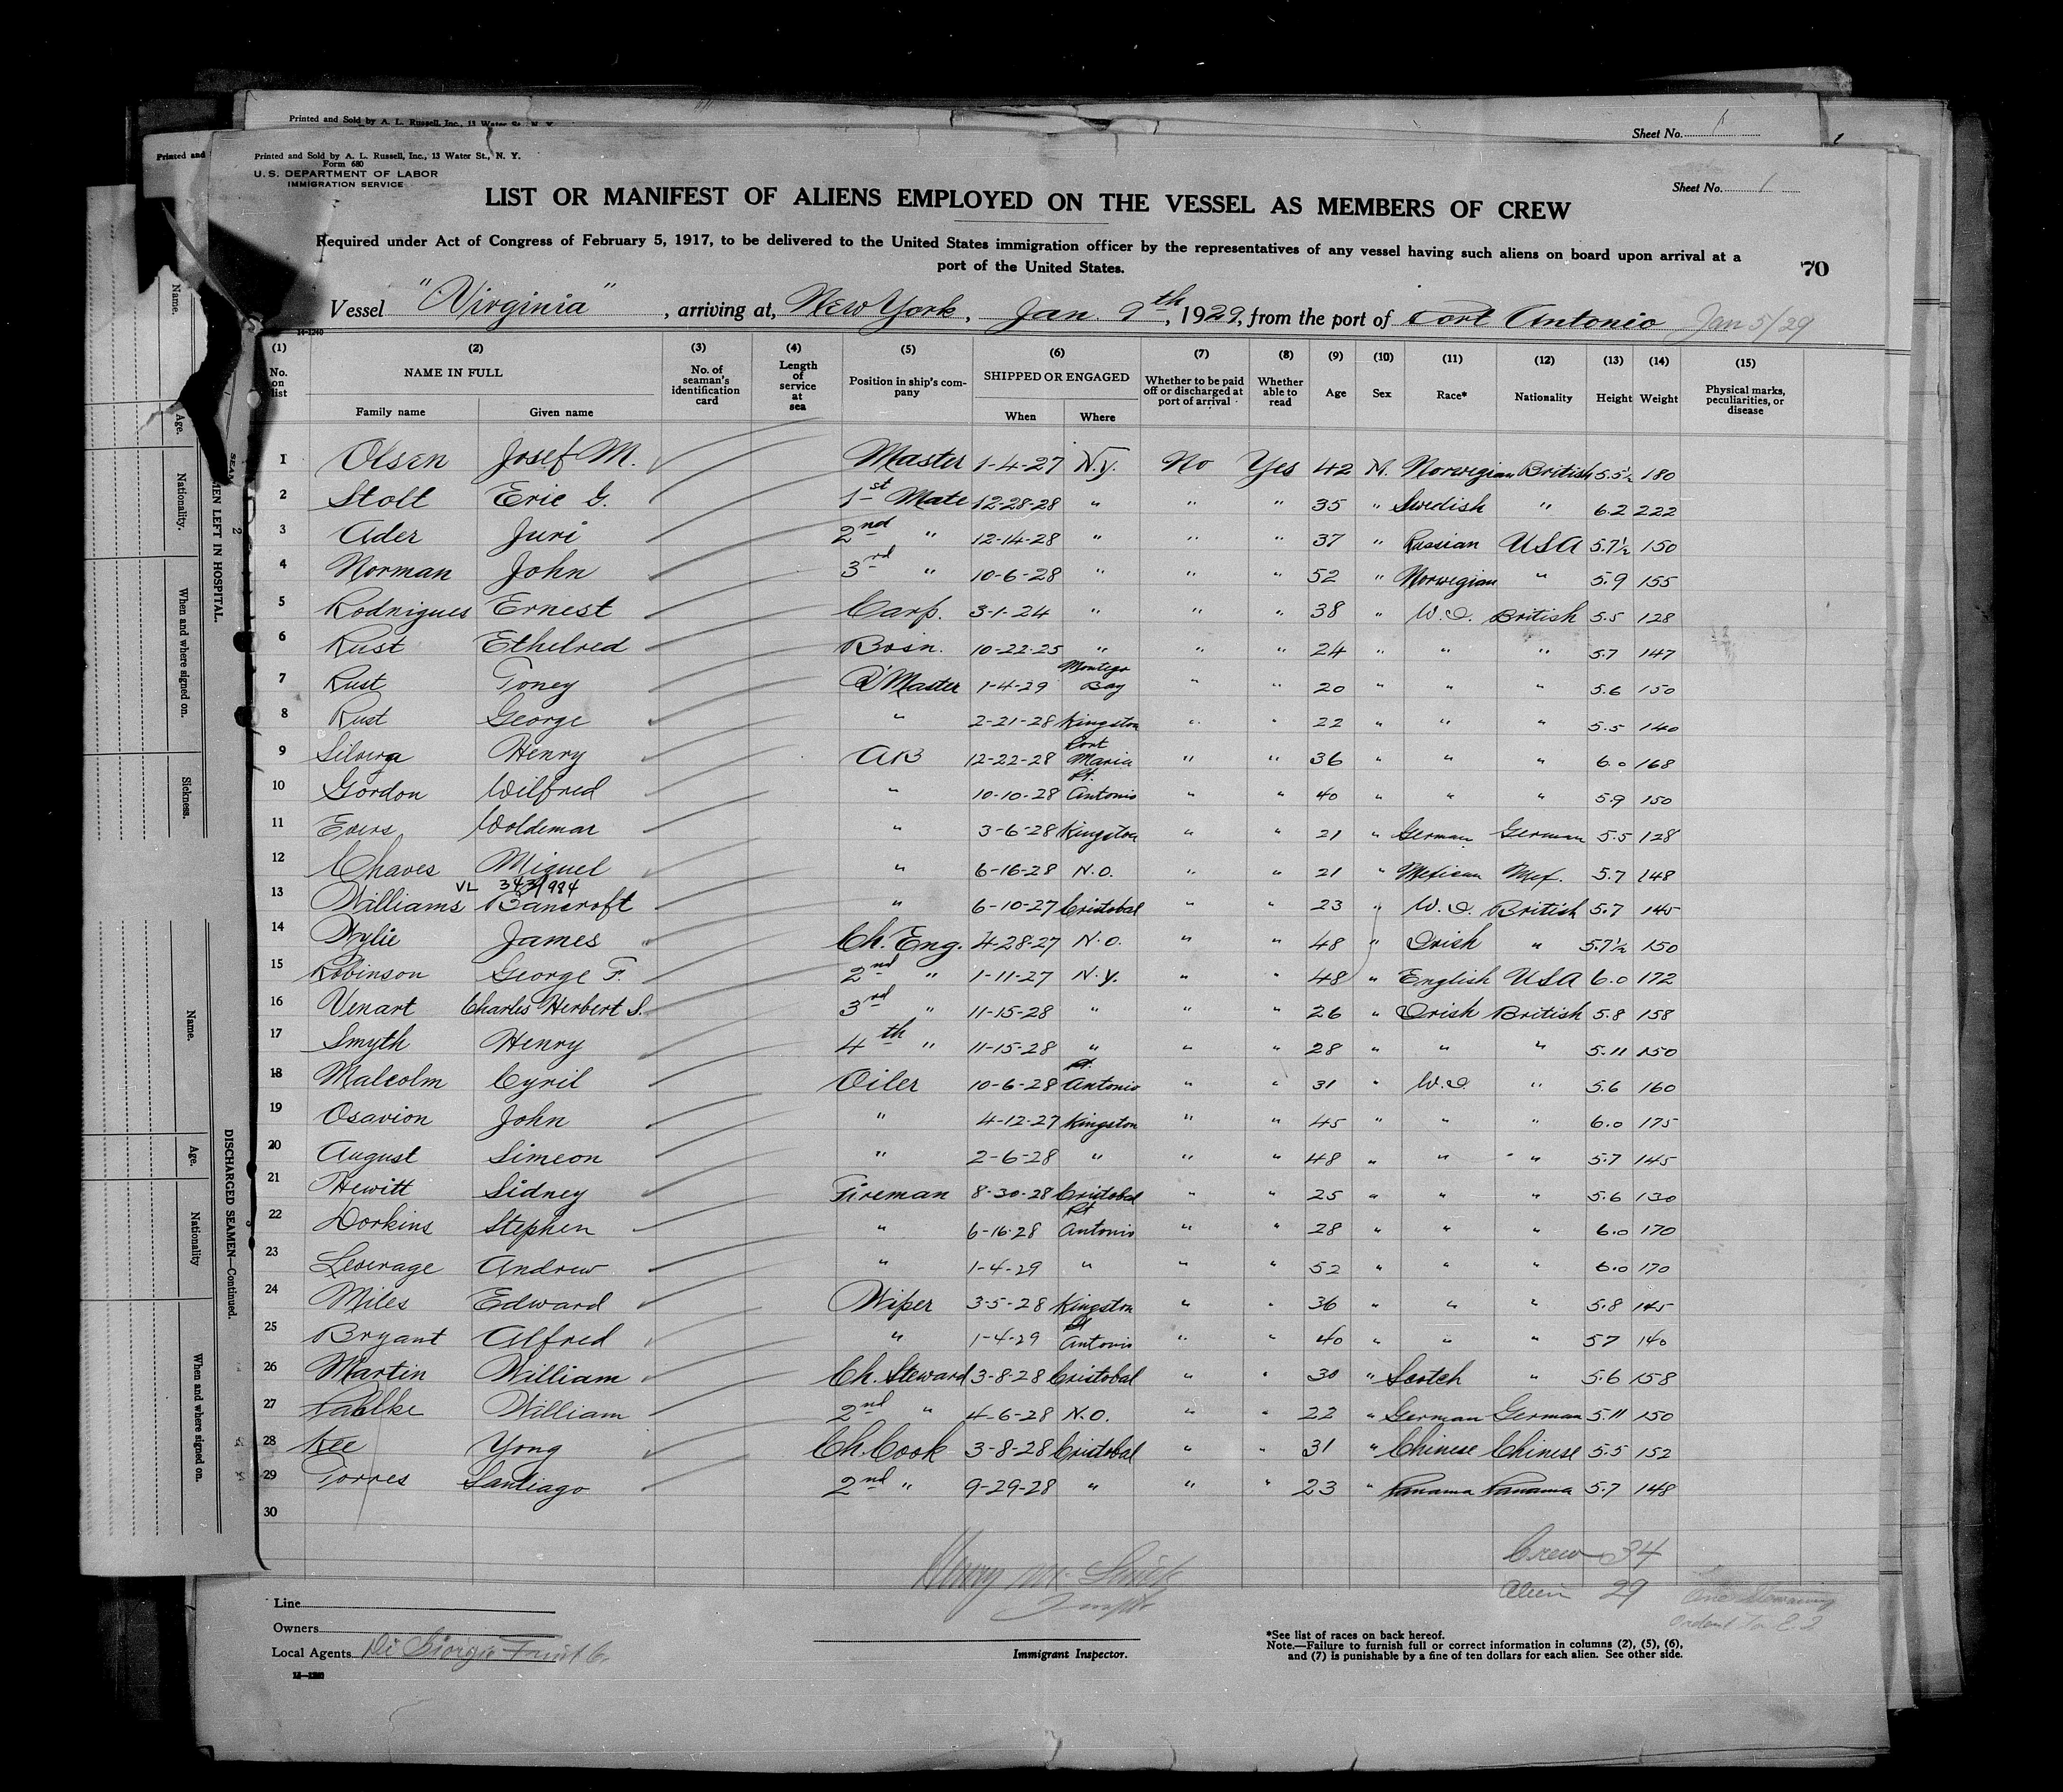 Printed and Sold by A. L. Russell, Inc., 13 Water St., N. Y.
Sheet No. 1
Printed and
Printed and Sold by A. L. Russell, Inc., 13 Water St., N. Y.
Form 680
U. S. DEPARTMENT OF LABOR
IMMIGRATION SERVICE
Sheet No. 1
LIST OR MANIFEST OF ALIENS EMPLOYED ON THE VESSEL AS MEMBERS OF CREW
Required under Act of Congress of February 5, 1917, to be delivered to the United States immigration officer by the representatives of any vessel having such aliens on board upon arrival at a
port of the United States.
70
Vessel "Virginia", arriving at, New York, Jan 9th, 1929, from the port of Port Antonio Jan 5/29
14-1240
(1) (2) (3) (4) (5) (6) (7) (8) (9) (10) (11) (12) (13) (14) (15)
No. on list NAME IN FULL Family name Given name No. of seaman's identification card Length of service at sea Position in ship's company SHIPPED OR ENGAGED When Where Whether to be paid off or discharged at port of arrival Whether able to read Age Sex Race* Nationality Height Weight Physical marks, peculiarities, or disease
1 Olsen Josef M. Master 1-4-27 N.Y. No Yes 42 M. Norwegian British 5.5½ 180
2 Stolt Eric G. 1st Mate 12-28-28 " " " 35 " Swedish " 6.2 222
3 Ader Juri 2nd " 12-14-28 " " " 37 " Russian USA 5.7½ 150
4 Norman John 3rd " 10-6-28 " " " 52 " Norwegian " 5.9 155
5 Rodnigues Ernest Carp. 3-1-24 " " " 38 " W.I. British 5.5 128
6 Rust Ethelred Bosn. 10-22-25 " " " 24 " " " 5.7 147
7 Rust Toney Q Master 1-4-29 Montego Bay " " 20 " " " 5.6 150
8 Rust George " 2-21-28 Kingston " " 22 " " " 5.5 140
9 Silvera Henry AB 12-22-28 Port Maria " " 36 " " " 6.0 168
10 Gordon Wilfred " 10-10-28 Pt. Antonio " " 40 " " " 5.9 150
11 Evers Woldemar " 3-6-28 Kingston " " 21 " German German 5.5 128
12 Chaves Miguel " 6-16-28 N.O. " " 21 " Mexican Mex. 5.7 148
VL
13 Williams Bancroft " 6-10-27 Cristobal " " 23 " W.I. British 5.7 145
14 Wylie James Ch. Eng. 4-28-27 N.O. " " 48 " Irish " 5.7½ 150
15 Robinson George F. 2nd " 1-11-27 N.Y. " " 48 " English USA 6.0 172
16 Venart Charles Herbert S. 3rd " 11-15-28 " " " 26 " Irish British 5.8 158
17 Smyth Henry 4th " 11-15-28 " " " 28 " " " 5.11 150
18 Malcolm Cyril Oiler 10-6-28 Pt. Antonio " " 31 " W.I. " 5.6 160
19 Osavion John " 4-12-27 Kingston " " 45 " " " 6.0 175
20 August Simeon " 2-6-28 " " " 48 " " " 5.7 145
21 Hewitt Sidney Fireman 8-30-28 Cristobal " " 25 " " " 5.6 130
22 Dorkins Stephen " 6-16-28 Pt Antonio " " 28 " " " 6.0 170
23 Leverage Andrew " 1-4-29 " " " 52 " " " 6.0 170
24 Miles Edward Wiper 3-5-28 Kingston " " 36 " " " 5.8 145
25 Bryant Alfred " 1-4-29 Pt Antonio " " 40 " " " 5.7 140
26 Martin William Ch. Steward 3-8-28 Cristobal " " 30 " Scotch " 5.6 158
27 Pahlke William 2nd " 4-6-28 N.O. " " 22 " German German 5.11 150
28 Kee Yong Ch. Cook 3-8-28 Cristobal " " 31 " Chinese Chinese 5.5 152
29 Torres Santiago 2nd " 9-29-28 " " " 23 " Panama Panama 5.7 148
30
Crew 34
Alien 29
Line
Owners
Local Agents Di Giorgio Fruit Co.
Immigrant Inspector.
*See list of races on back hereof.
Note.—Failure to furnish full or correct information in columns (2), (5), (6),
and (7) is punishable by a fine of ten dollars for each alien. See other side.
MEN LEFT IN HOSPITAL.
Name.
Age.
Nationality.
When and where signed on.
Sickness.
DISCHARGED SEAMEN—Continued.
Name.
Age.
Nationality
When and where signed on.